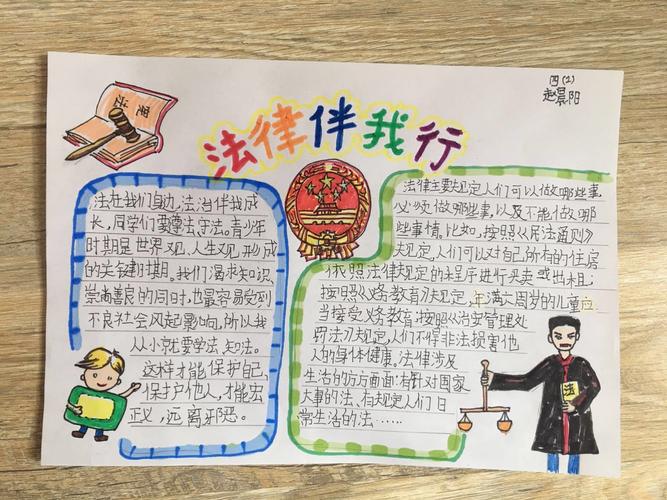 四(2)
赵晨阳
法律伴我行
法在我们身边,法治伴我成
长,同学们要遵法、守法。青少年
时期是世界观、人生观、形成
的关键时期。我们渴求知识、
崇尚善良的同时,也最容易受到
不良社会风起影响,所以我
从小就要学法,知法。
这样才能保护自己,
保护他人,才能宏
正义,远离邪恶。
法律主要规定人们可以做哪些事,
必须做哪些事,以及不能做哪
些事情。比如,按照《民法通则》
规定,人们可以对自己所有的住房
依照法律规定的程序进行买卖或出租;
按照《义务教育》法规定,年满六周岁的儿童应
当接受义务教育;按照《治安管理处
罚法》规定,人们不得非法损害他
人的身体健康。法律涉及
生活的方方面面:有针对国家
大事的法,有规定人们日
常生活的法……
法